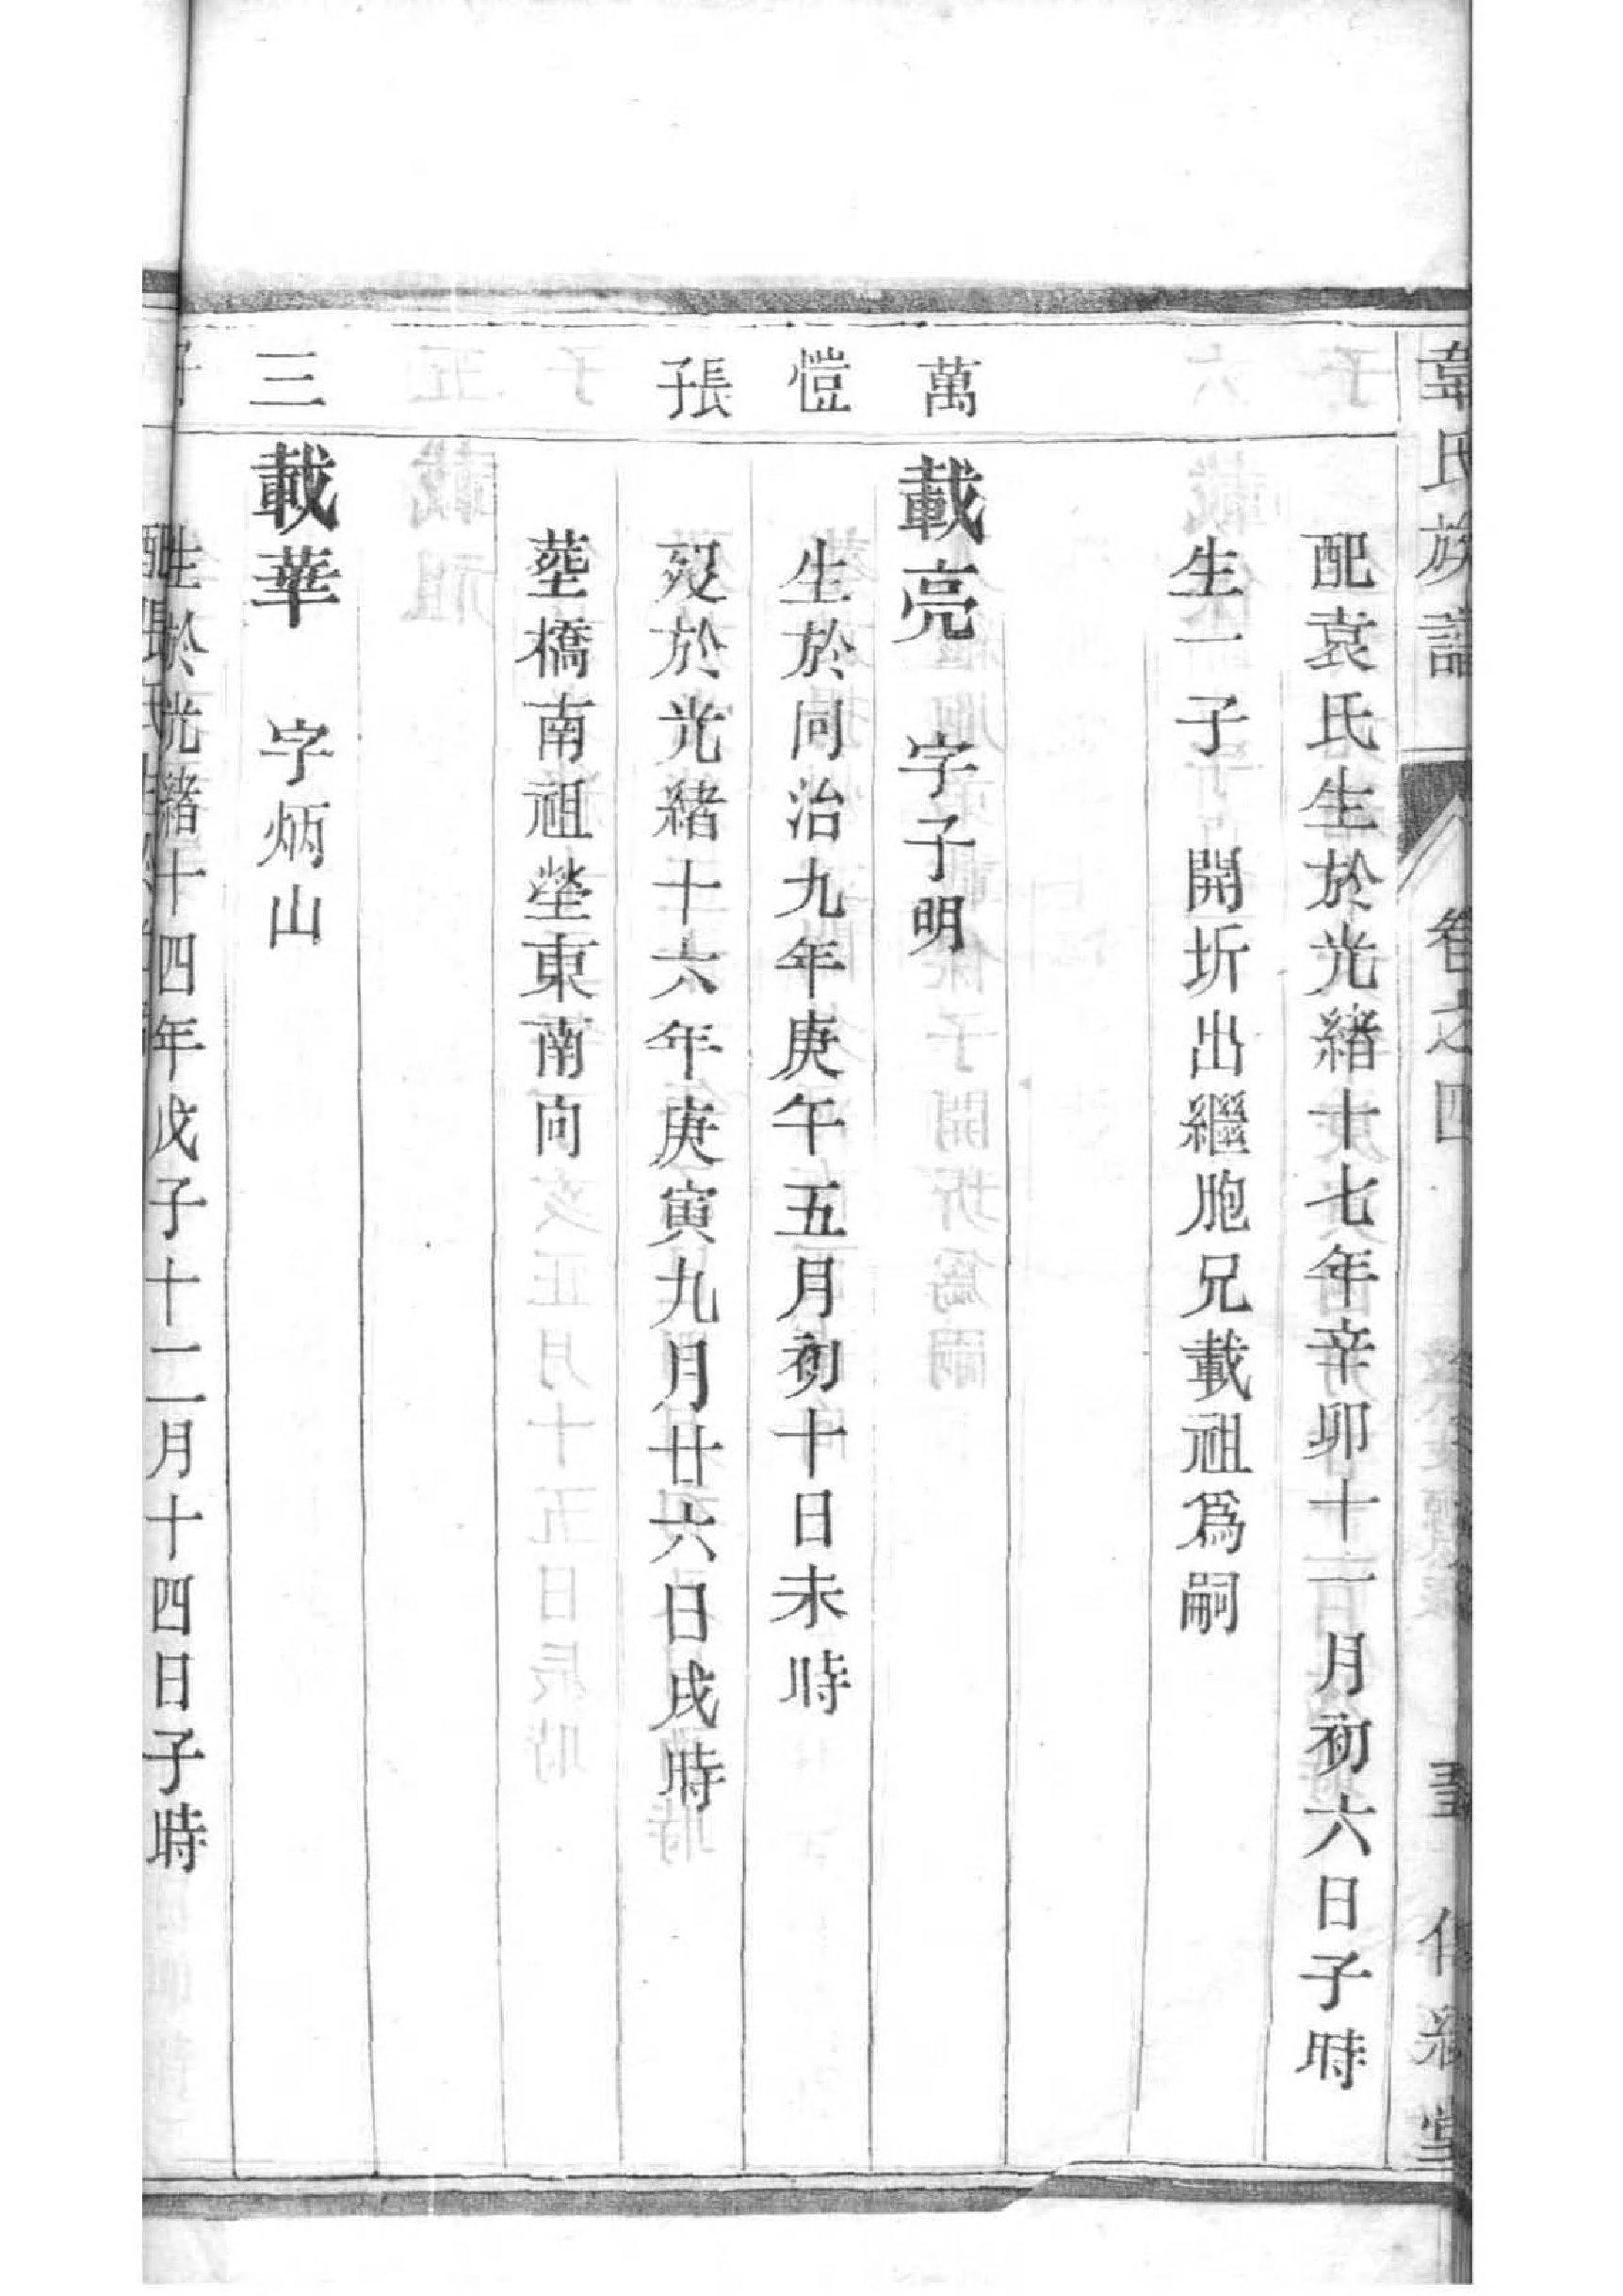 韋氏族譜 卷之四
配袁氏生於光緒十七年辛卯十二月初六日子時
生一子 開圻出繼胞兄載祖爲嗣
萬愷張子
載亮 字子明
生於同治九年庚午五月初十日未時
歿於光緒十六年庚寅九月廿六日戌時
塟橋南祖塋東南向
三
載華 字炳山
生於光緒十四年戊子十二月十四日子時